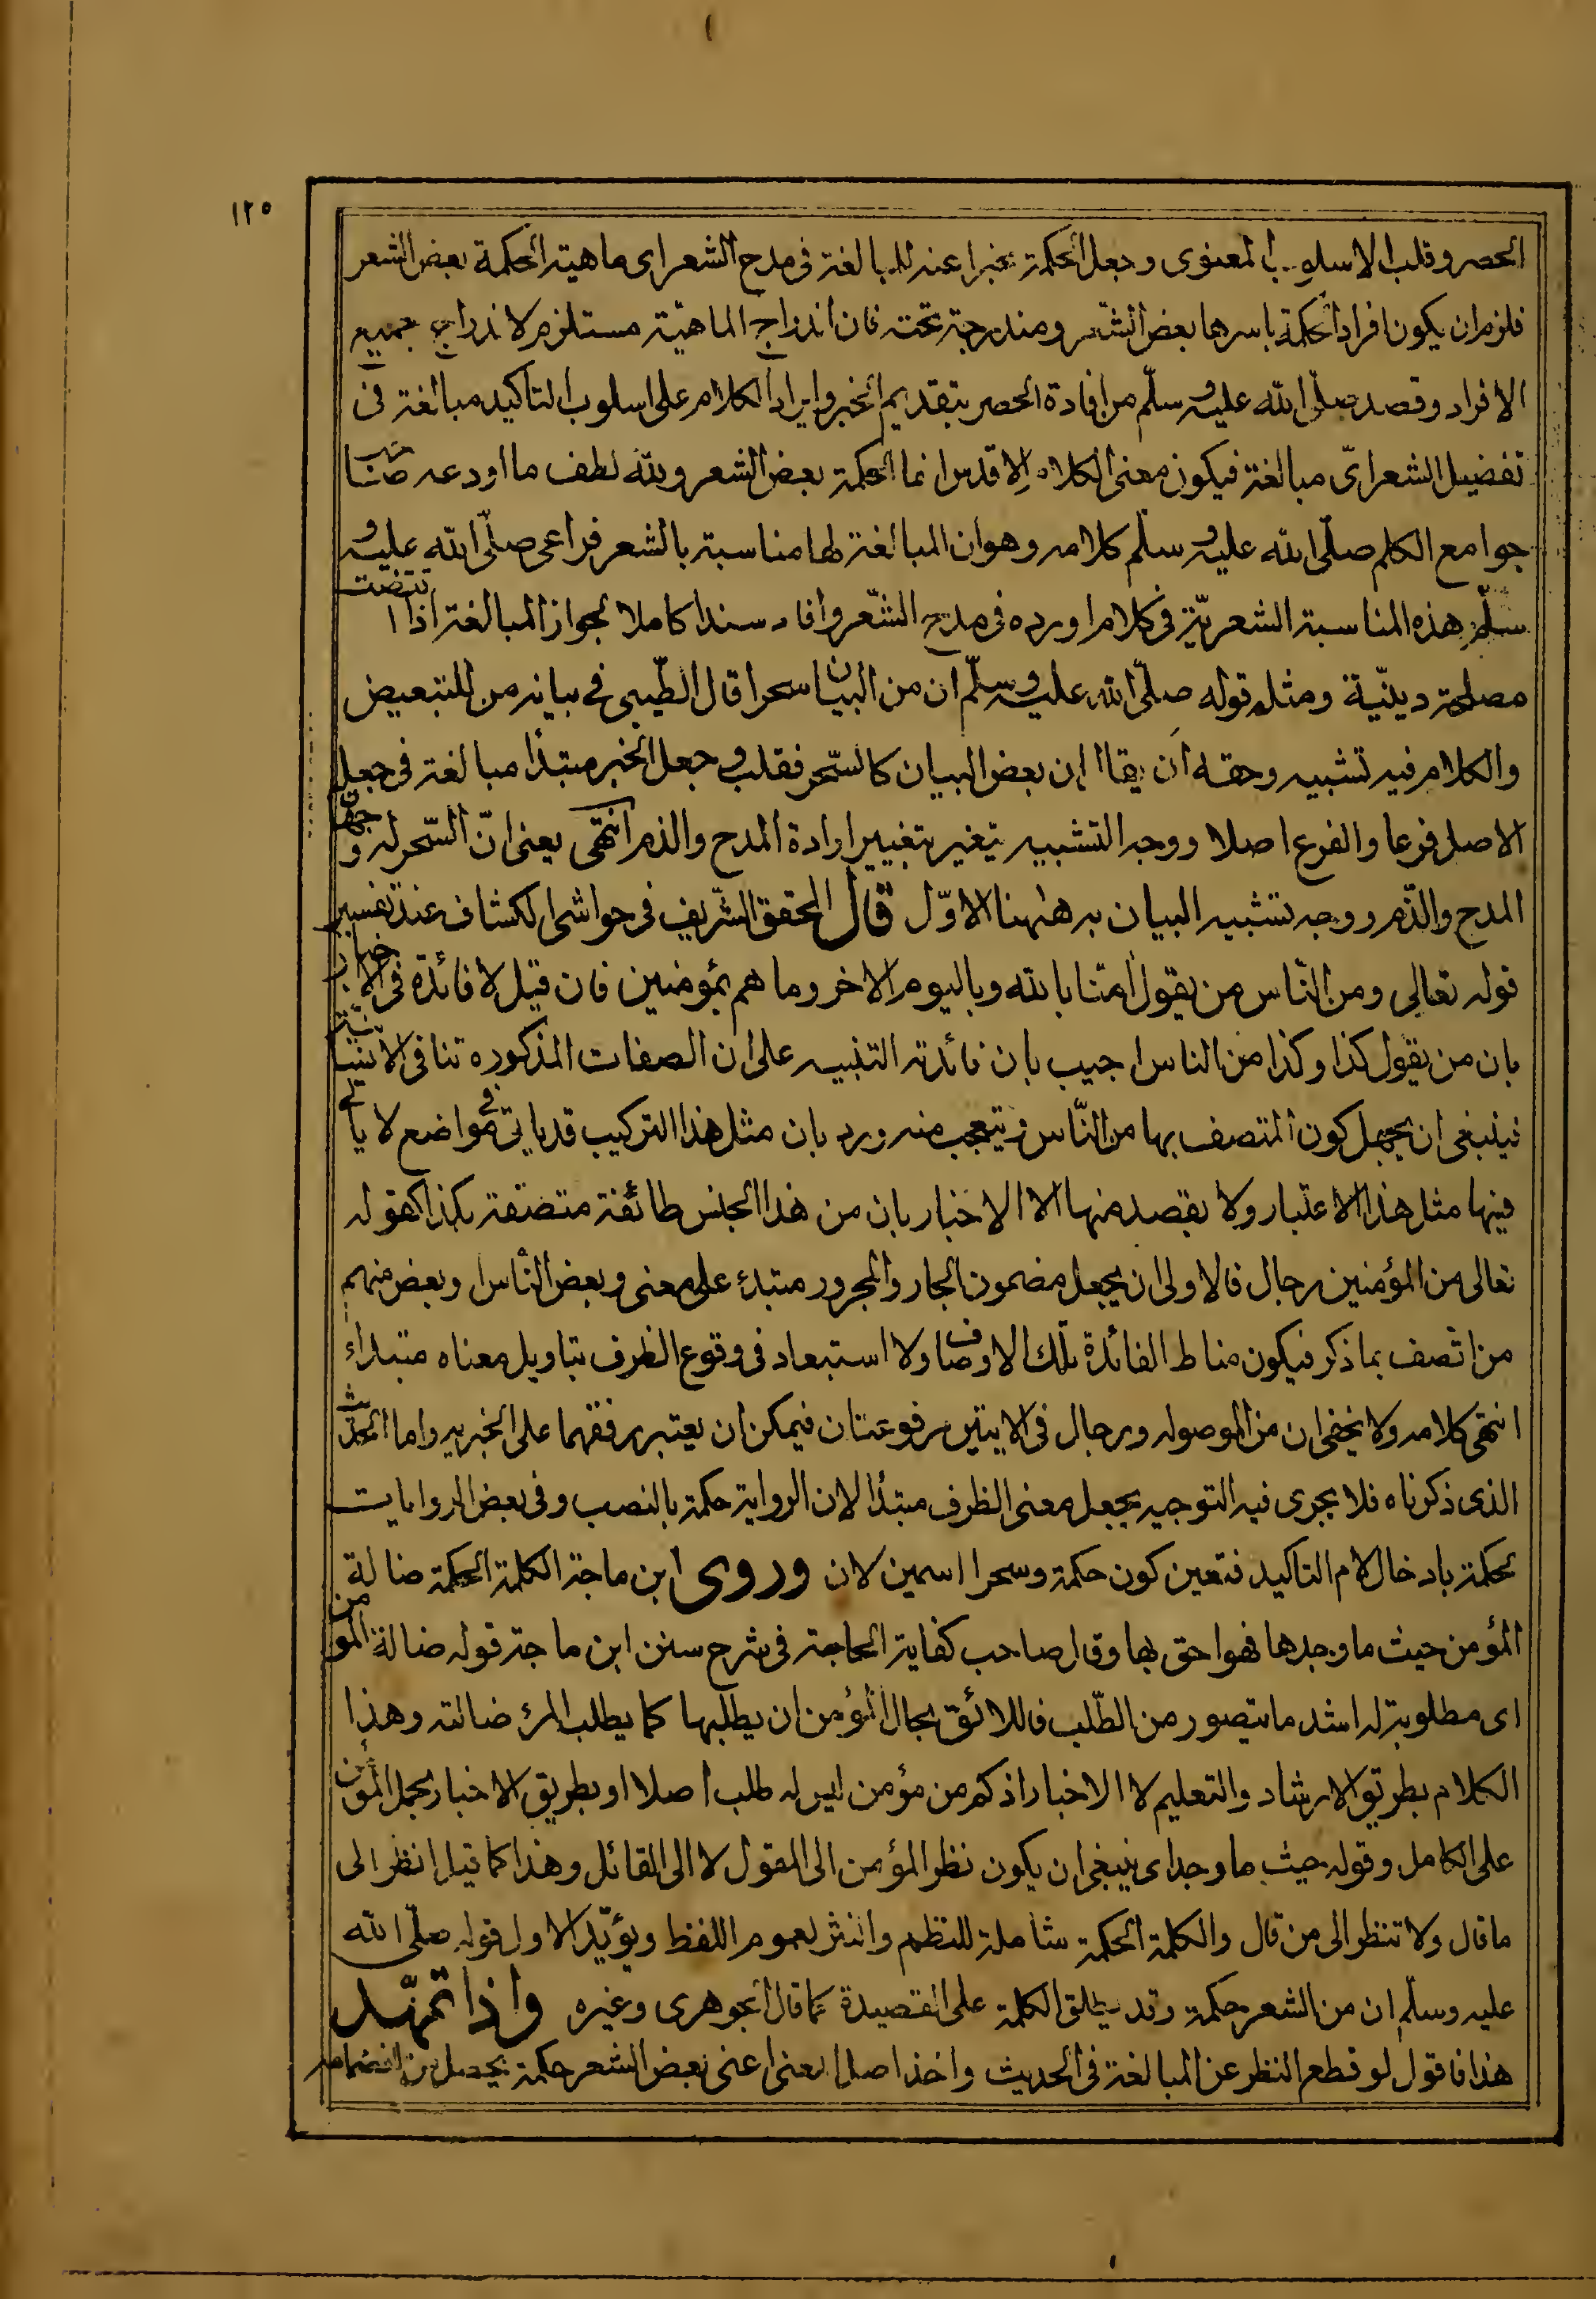 ١٢٥
الحصر وقلب الاسلوب المعنوى وجعل الحكمة مخبرا عنه للمبالغة فى مدح الشعر اى ماهية الحكمة بعض الشعر
فلزم ان يكون افراد الحكمة باسرها بعض الشعر ومندرجة تحته فان اندراج الماهيّة مستلزم لاندراج جميع
الافراد وقصد صلّى الله عليه وسلّم من افادة الحصر بتقديم الخبر وايراد الكلام على اسلوب التاكيد مبالغة فى
تفضيل الشعر اىّ مبالغة فيكون معنى الكلام الاقدس انما الحكمة بعض الشعر ولله لطف ما اودعه صاحب
جوامع الكلم صلّى الله عليه وسلّم كلامه وهو ان المبالغة لها مناسبة بالشعر فراعى صلّى الله عليه و
سلّم هذه المناسبة الشعريّة فى كلام اورده فى مدح الشّعر وافاد سندا كاملا لجواز المبالغة اذا اقتضت
مصلحة دينيّة ومثله قوله صلّى الله عليه وسلّم ان من البيان لسحرا قال الطّيبى فى بيانه من للتبعيض
والكلام فيه تشبيه وحقه ان يقال ان بعض البيان كالسّحر فقلب وجعل الخبر مبتدأ مبالغة فى جعل
الاصل فرعا والفرع اصلا ووجه التشبيه يتغير بتغيير ارادة المدح والذم انتهى يعنى انّ السّحر له وجهان
المدح والذّم ووجه تشبيه البيان به ههنا الاوّل قال المحقق الشّريف فى حواشى الكشاف عند تفسير
قوله تعالى ومن النّاس من يقول امنّا بالله وباليوم الاخر وما هم بمؤمنين فان قيل لا فائدة فى الاخبار
بان من يقول كذا وكذا من الناس اجيب بان فائدته التنبيه على ان الصفات المذكوره تنافى الانسانيّة
فينبغى ان يجهل كون المتصف بها من النّاس ويتعجب منه ورد بان مثل هذا التركيب قد ياتى فى مواضع لا ياتى
فيها مثل هذا الاعتبار ولا يقصد منها الا الاخبار بان من هذا الجنس طائفة متصفة بكذا كقوله
تعالى من المؤمنين رجال فالاولى ان يجعل مضمون الجار والمجرور مبتدء على معنى وبعض النّاس او بعض منهم
من اتّصف بما ذكر فيكون مناط الفائدة تلك الاوصاف ولا استبعاد فى وقوع الظرف بتاويل معناه مبتداء
انتهى كلامه ولا يخفى ان من الموصوله ورجال فى الايتين مرفوعتان فيمكن ان يعتبر رفعهما على الخبريه واما الحديث
الذى ذكرناه فلا يجرى فيه التوجيه بجعل معنى الظرف مبتدأ لان الرواية حكمة بالنصب وفى بعض الروايات
لحكمة بادخال لام التاكيد فتعين كون حكمة وسحرا اسمين لان وروى ابن ماجة الكلمة الحكمة ضالة
المؤمن حيث ما وجدها فهو احق بها وقال صاحب كفاية الحاجة فى شرح سنن ابن ماجة قوله ضالة المؤمن
اى مطلوبة له اشد ما يتصور من الطّلب فاللائق بحال المؤمن ان يطلبها كما يطلب المرء ضالته وهذا
الكلام بطريق الارشاد والتعليم لا الاخبار اذ كم من مؤمن ليس له طلب اصلا او بطريق الاخبار بحمل المؤمن
على الكامل وقوله حيث ما وجد اى ينبغى ان يكون نظر المؤمن الى المقول لا الى القائل وهذا كما قيل انظر الى
ما قال ولا تنظر الى من قال والكلمة الحكمة شاملة للنظم والنثر لعموم اللفظ ويؤيّد الاول قوله صلّى الله
عليه وسلّم ان من الشعر حكمة وقد يطلق الكلمة على القصيدة كما قال الجوهرى وغيره واذا تمهّد
هذا فاقول لو قطع النظر عن المبالغة فى الحديث واخذ اصل المعنى اعنى بعض الشعر حكمة يحصل من انضمامه